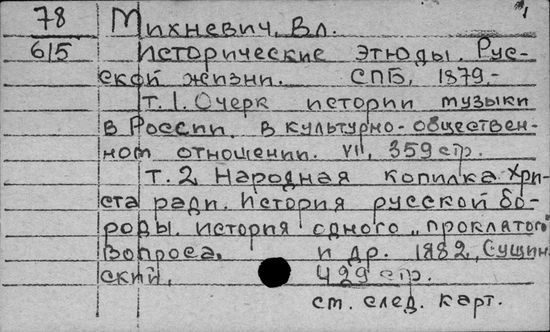 78 Михневич, Вл.
6/5 Исторические этюды. Рус-
ской жизни. СПБ, 1879,-
т. 1. Очерк истории музыки
в России в культурно-обществен-
ном отношении. VII, 359 стр.
т. 2 Народная копилка Хри-
ста ради. История русской бо-
роды. история одного „проклятого"
вопроса. и др. 1882, Сущин-
ский, 429 стр.
см. след. карт.